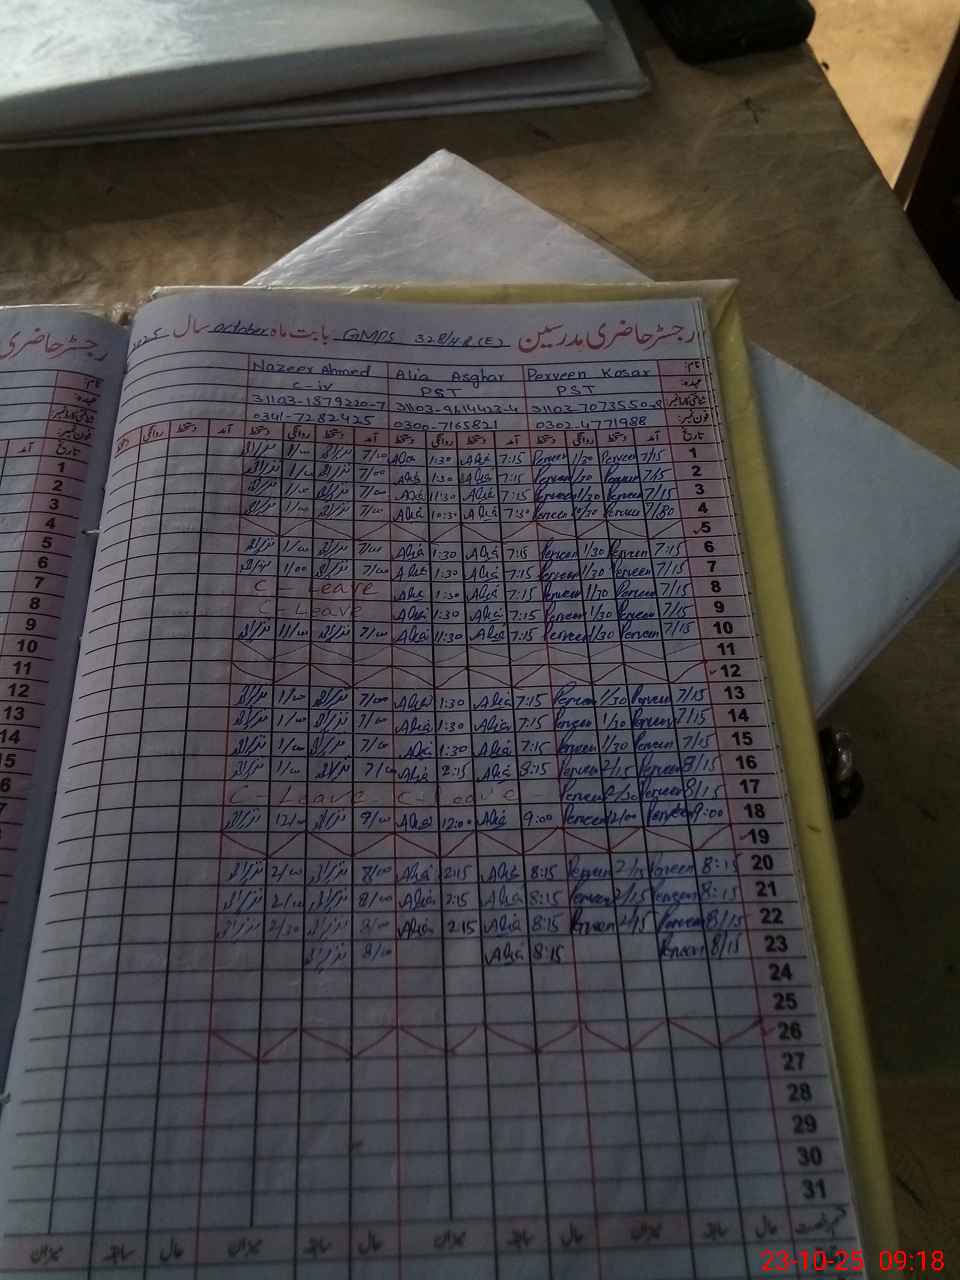 رجسٹر حاضری مدرسین GMPS 328/HR(E) بابت ماہ october سال 2025
رجسٹر حاضری
نام: Perveen Kosar Alia Asghar Nazeer Ahmed
عہدہ: PST PST C-iv
شناختی کارڈ نمبر: 31103-7073550-8 31103-9614423-4 31103-1879220-7
فون نمبر: 0302-4771988 0300-7165821 0341-7282425
تاریخ آمد دستخط روانگی دستخط آمد دستخط روانگی دستخط آمد دستخط روانگی دستخط آمد دستخط روانگی دستخط
1 7/15 Perveen 1/30 Perveen 7:15 Alia 1:30 Alia 7/00 1/00
2 7/15 Perveen 1/30 Perveen 7:15 Alia 1:30 Alia 7/00 1/00
3 7/15 Perveen 1/30 Perveen 7:15 Alia 11:30 Alia 7/00 1/00
4 7/30 Perveen 10/30 Perveen 7:30 Alia 10:30 Alia 7/00 1/00
5
6 7:15 Perveen 1/30 Perveen 7:15 Alia 1:30 Alia 7/00 1/00
7 7/15 Perveen 1/30 Perveen 7:15 Alia 1:30 Alia 7/00 1/00
8 7/15 Perveen 1/30 Perveen 7:15 Alia 1:30 Alia C - Leave
9 7/15 Perveen 1/30 Perveen 7:15 Alia 1:30 Alia C - Leave
10 7/15 Perveen 1/30 Perveen 7:15 Alia 11:30 Alia 7/00 11/00
11
12
13 7/15 Perveen 1/30 Perveen 7:15 Alia 1:30 Alia 7/00 1/00
14 7/15 Perveen 1/30 Perveen 7:15 Alia 1:30 Alia 7/00 1/00
15 7/15 Perveen 1/30 Perveen 7:15 Alia 1:30 Alia 7/00 1/00
16 8/15 Perveen 2/15 Perveen 8:15 Alia 2:15 Alia 7/00 1/00
17 8/15 Perveen 2/30 Perveen C - Leave C - Leave
18 9:00 Perveen 12/00 Perveen 9:00 Alia 12:00 Alia 9/00 12/00
19
20 8:15 Perveen 2/15 Perveen 8:15 Alia 2:15 Alia 8/00 2/00
21 8:15 Perveen 2/15 Perveen 8:15 Alia 2:15 Alia 8/00
22 8/15 Perveen 2/15 Perveen 8:15 Alia 2:15 Alia 8/00 2/30
23 8/15 Perveen 8:15 Alia 8/00
24
25
26
27
28
29
30
31
حال سابقہ میزان حال سابقہ میزان حال سابقہ میزان حال سابقہ میزان
23-10-25 09:18